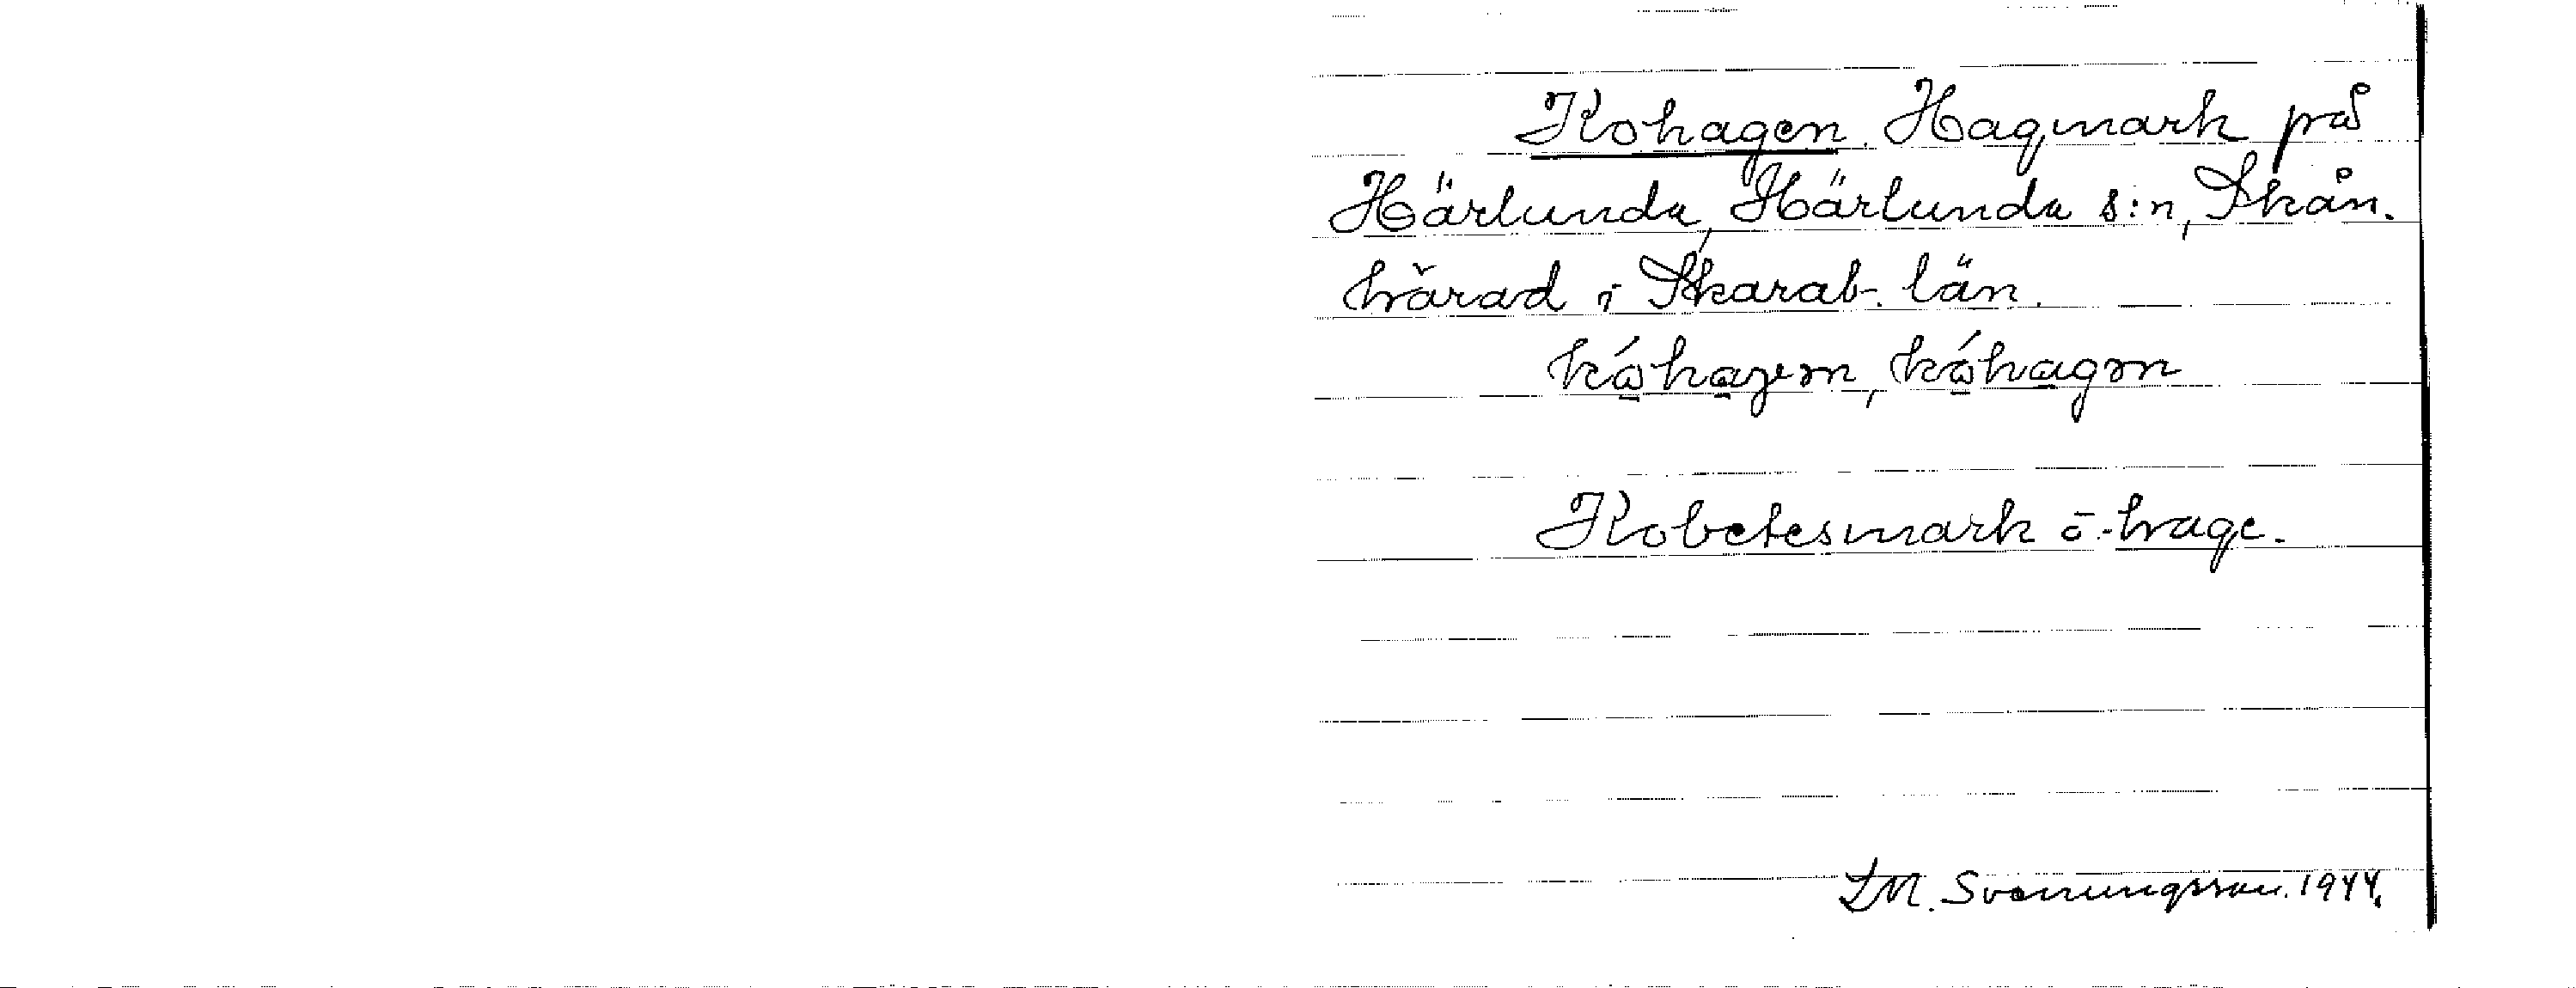 Kohagen. Hagmark på
Härlunda, Härlunda s:n, Skån.
härad i Skarab. län.
kóhagen, kóhagen
Kobetesmark o. -hage.
I.M. Svenungsson. 1944.